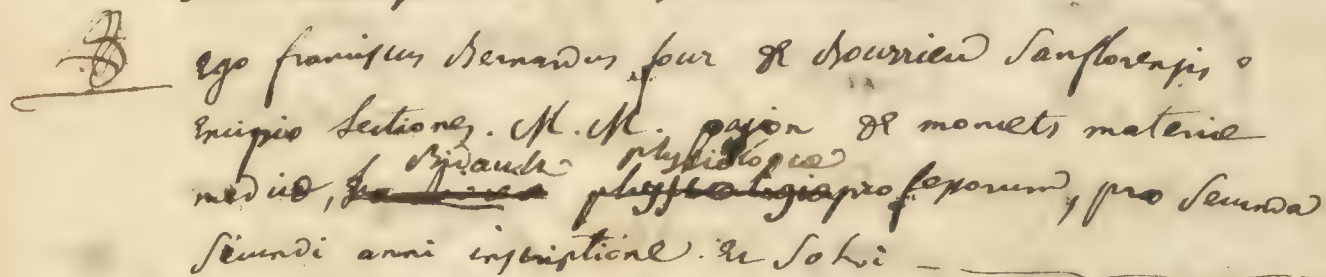 Ego franciscus Bernardus four de Bourrieu Sanflorensis
Excipio Lectiones. M. M. pajon de moncets materiæ
medicæ, physiologiæ professorum, pro Secunda
Secundi anni inscriptione. Et Solvi